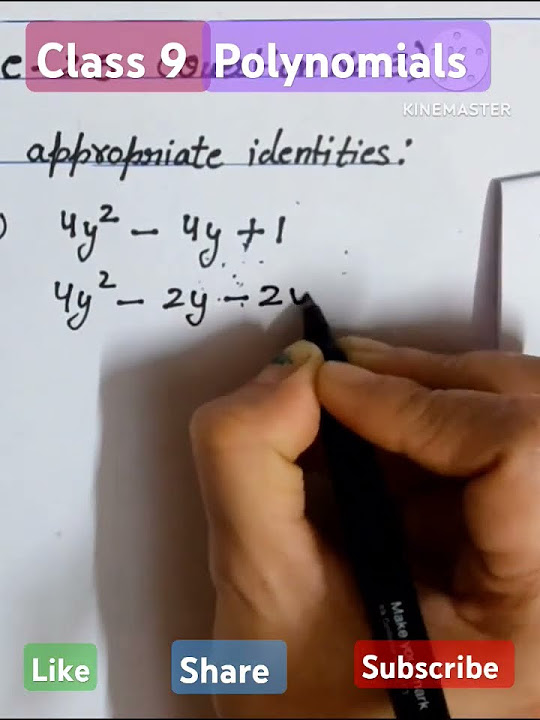 Class 9 Polynomials
KINEMASTER
appropriate identities:
4y² - 4y + 1
4y² - 2y - 2y
Make your mark
Like
Share
Subscribe